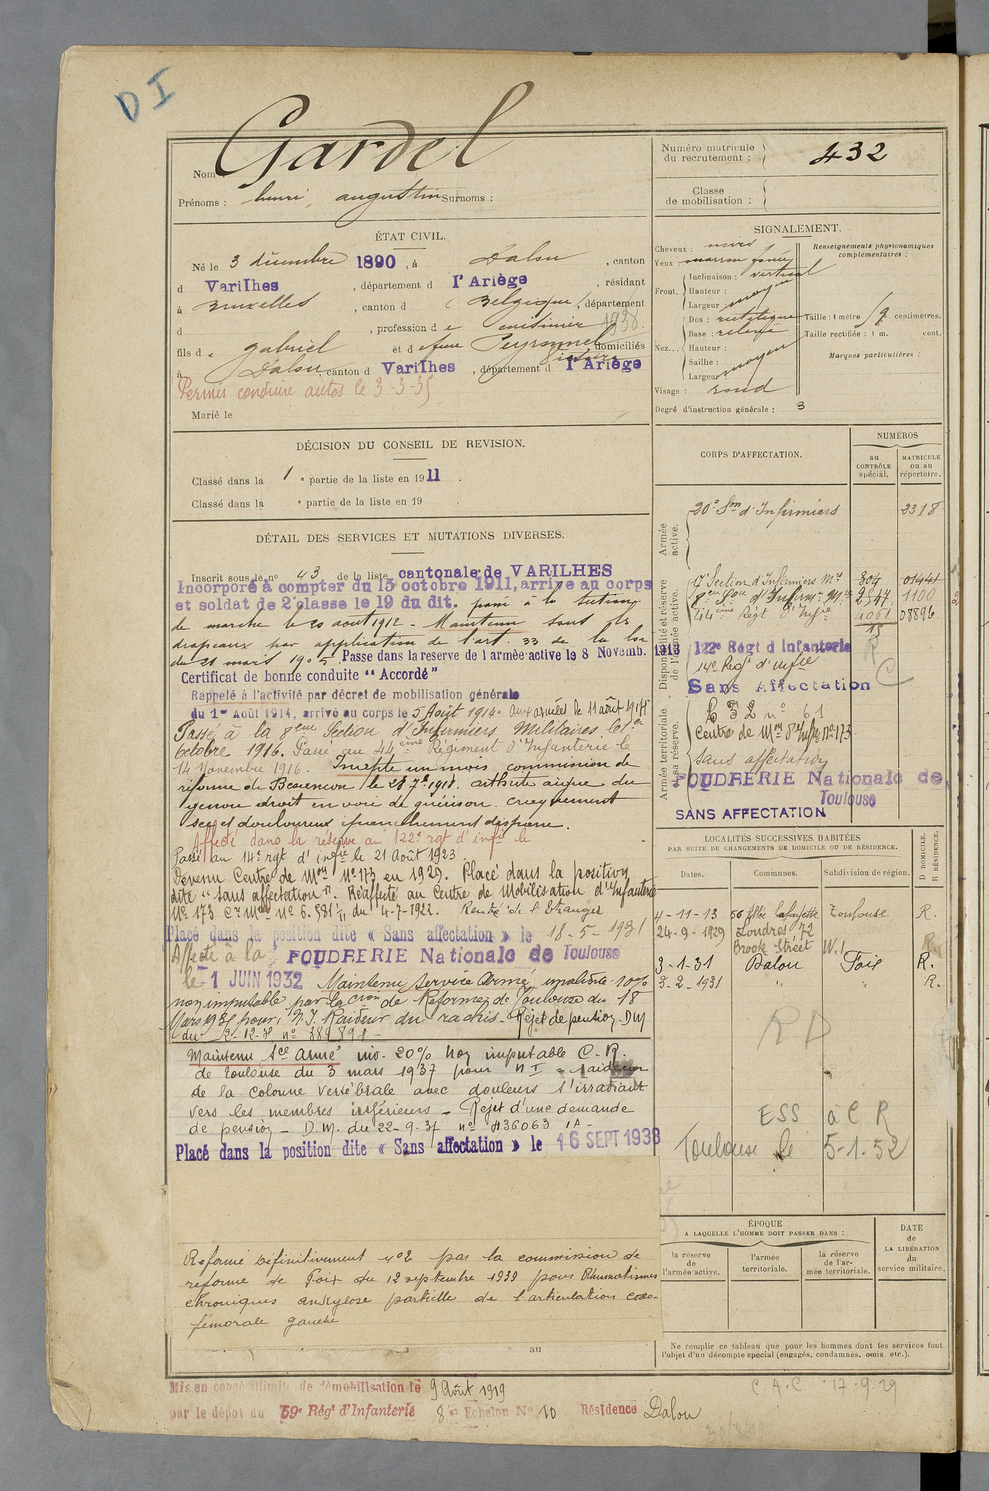 D I
Nom : Gardel
Prénoms : henri, augustin Surnoms :
ÉTAT CIVIL.
Né le 3 décembre 1890, à Dalou, canton
d Varilhes, département d l'Ariège, résidant
à Bruxelles, canton d (Belgique), département
d , profession de cuisinier 1938.
fils de Gabriel et de feue Peyronnel domiciliés
à Dalou, canton d Varilhes, département d l'Ariège
Permis conduire autos le 3-3-35
Marié le
DÉCISION DU CONSEIL DE REVISION.
Classé dans la 1e partie de la liste en 1911.
Classé dans la e partie de la liste en 19 .
DÉTAIL DES SERVICES ET MUTATIONS DIVERSES.
Inscrit sous le no 43 de la liste cantonale de VARILHES
Incorporé à compter du 15 octobre 1911, arrive au corps
et soldat de 2e classe le 19 du dit. passé à la section
de marche le 20 août 1912 - Maintenu sous les
drapeaux par application de l'art. 33 de la loi
du 21 mars 1905. Passe dans la reserve de l armée active le 8 Novemb. 1913
Certificat de bonne conduite "Accordé"
Rappelé à l'activité par décret de mobilisation générale
du 1er Août 1914, arrivé au corps le 5 Août 1914. aux armées le 11 août 1914
Passé à la 8eme Section d'Infirmiers Militaires le 1er
Octobre 1916. Passé au 44eme Régiment d'Infanterie le
14 Novembre 1916. Inapte un mois commission de
réforme de Besançon le 27 7e 1918. arthrite aigue du
genou droit en voie de guérison. craquement
secs et douloureux
Affecté dans la réserve au 122e rgt d'infie le
Passé au 14e rgt d'infie le 21 Août 1923
Devenu Centre de Mon No 173 en 1929. Placé dans la position
dite "sans affectation". Réaffecté au Centre de Mobilisation d'Infanterie
No 173 Cre Mle no 6.531 1/11 du 4-7-1922. Rentré de l'Etranger
Placé dans la position dite « Sans affectation » le 18-5-1931
Affecté à la POUDRERIE Nationale de Toulouse
le 1 JUIN 1932 Maintenu Service Armé, invalidité 10%
non imputable par la Cion de Réforme de Toulouse du 18
Mars 1935 pour: N.I. Raideur du rachis - Rejet de pension DM
du 2-12-35 no 389891 -
Maintenu Sce Armé inv. 20% non imputable C.R.
de Toulouse du 3 mars 1937 pour N I = raideur
de la colonne vertébrale avec douleurs s'irradiant
vers les membres inférieurs - Rejet d'une demande
de pension - D.M. du 22-9-37 no 436063 1A -
Placé dans la position dite « Sans affectation » le 16 SEPT 1938
Réformé définitivement no 2 par la commission de
réforme de Foix du 12 septembre 1939 pour Rhumatismes
chroniques ankylose partielle de l'articulation coxo-
fémorale gauche
au
Mis en congé illimité de démobilisation le 9 Août 1919
par le dépot du 59e Régt d'Infanterie 8e Echelon No 10 Résidence Dalou
Numéro matricule du recrutement : 432
Classe de mobilisation :
SIGNALEMENT.
Cheveux : noirs
Yeux marron foncé
Front. Inclinaison : vertical
Hauteur : moyen
Largeur :
Nez... Dos : rectiligne
Base : relevé
Hauteur :
Saillie : moyen
Largeur
Visage : rond
Renseignements physionomiques complémentaires :
Taille : 1 mètre 59 centimètres.
Taille rectifiée : 1 m. cent.
Marques particulières :
Degré d'instruction générale : 3
CORPS D'AFFECTATION.
NUMÉROS
AU CONTRÔLE spécial.
MATRICULE ou au répertoire.
Armée active.
20e Son d'Infirmiers 2318
Disponibilité et réserve de l'armée active.
17e Section d'Infirmiers Mres 804 01441
8eme Son d'Infirm. Mres 2547 1100
44eme Régt d'Infie 1061 08896
15
122e Régt d Infanterie R
14e Regt d'infie C
Sans Affectation
Armée territoriale et sa réserve.
C 32 no 61
Centre de Mon d'Infie No 173
Sans affectation
POUDRERIE Nationale de
Toulouse
SANS AFFECTATION
LOCALITÉS SUCCESSIVES HABITÉES
PAR SUITE DE CHANGEMENTS DE DOMICILE OU DE RÉSIDENCE.
Dates. Communes. Subdivision de région. D. DOMICILE. R. RÉSIDENCE.
4-11-13 56 Allée Lafayette Toulouse R.
24-9-1929 Londres 72
Brook Street W.1 R
3-1-31 Dalou Foix R.
3-2-1931 " " R.
R D
ESS à C R
Toulouse le 5-1-52
ÉPOQUE
A LAQUELLE L'HOMME DOIT PASSER DANS :
la réserve de l'armée active.
l'armée territoriale.
la réserve de l'armée territoriale.
DATE de LA LIBÉRATION du service militaire.
Ne remplir ce tableau que pour les hommes dont les services font
l'objet d'un décompte spécial (engagés, condamnés, omis, etc.).
C.A.C 17-9-29